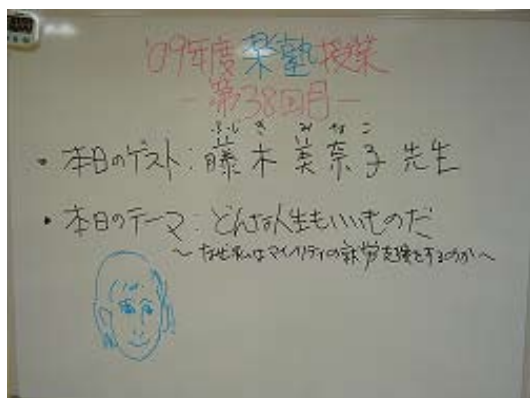 '09年度楽塾授業
－第38回目－
ふじ き み な こ
・本日のゲスト：藤木美奈子先生
・本日のテーマ：どんな人生もいいものだ
～なぜ私はマイノリティの就労支援をするのか～